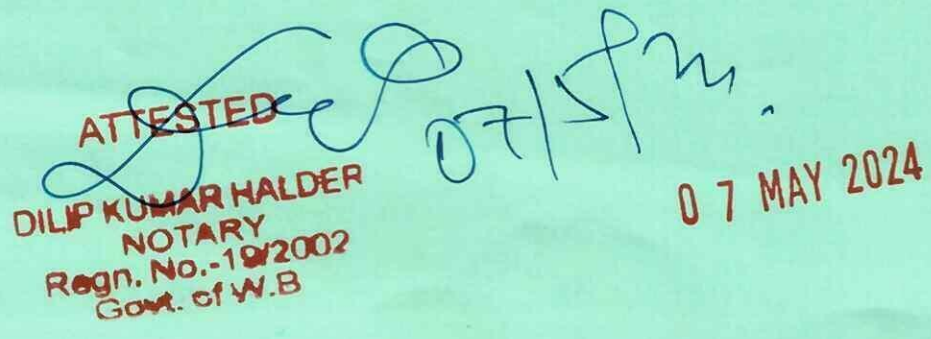 ATTESTED
07/5/
DILIP KUMAR HALDER
NOTARY
Regn. No.-19/2002
Govt. of W.B
07 MAY 2024